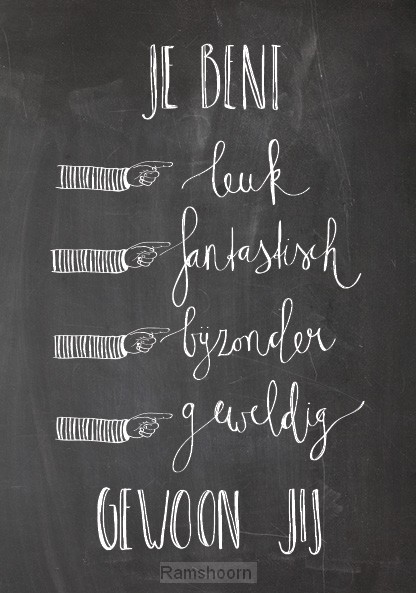 JE BENT
leuk
fantastisch
bijzonder
geweldig
GEWOON JIJ
Ramshoorn